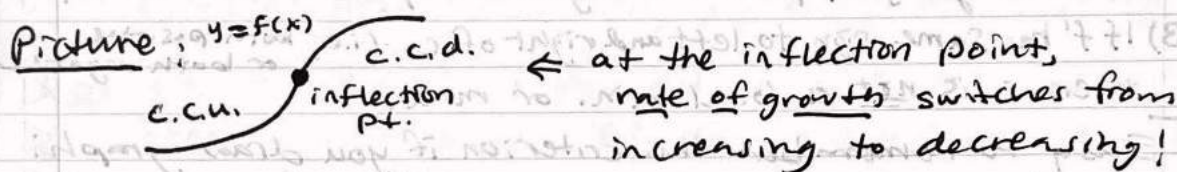 Picture: y=f(x)
c.c.d.
c.c.u.
inflection
pt.
← at the inflection point,
rate of growth switches from
increasing to decreasing!